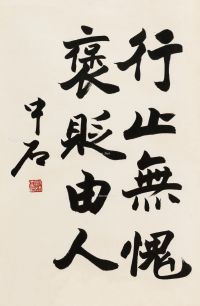 行止無愧
褒貶由人
中石